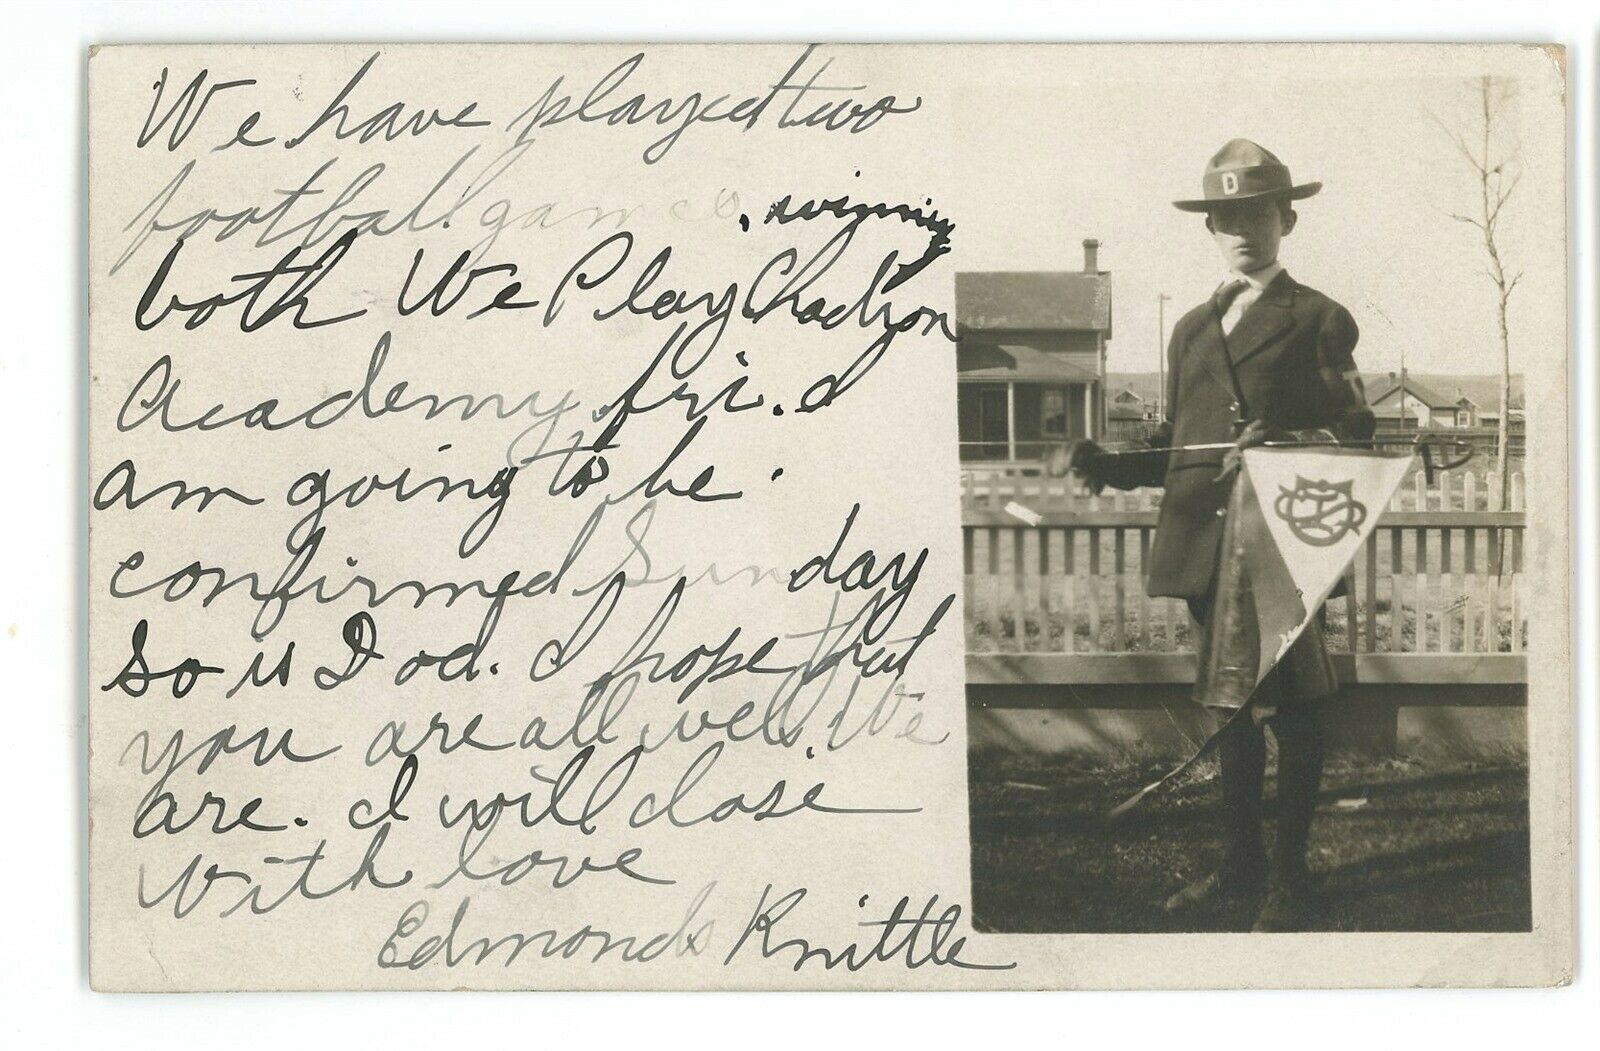 We have played two
football games, winning
both We Play Chadron
Academy fri. I
am going to be
confirmed Sunday
so is Dod. I hope that
you are all well, We
are. I will close
with love
Edmonds Knittle
D